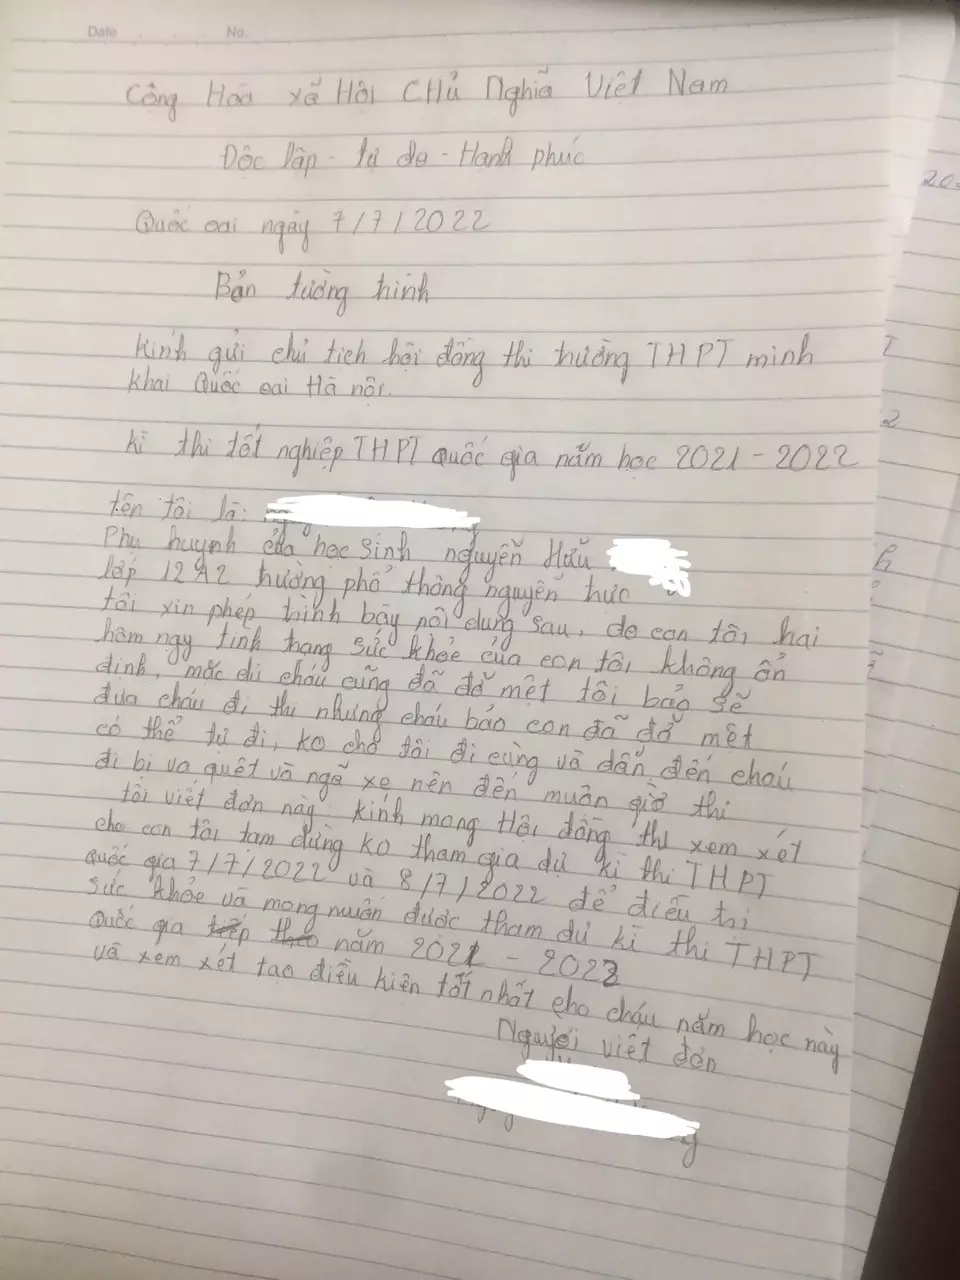 Date No.
Công Hòa xã Hội CHủ Nghĩa Việt Nam
Độc lập - tự do - Hạnh phúc
Quốc oai ngày 7/7/2022
Bản tường trình
Kính gửi chủ tịch hội đồng thi trường THPT minh
khai Quốc oai Hà nội.
kì thi tốt nghiệp THPT quốc gia năm học 2021 - 2022
tên tôi là:
Phụ huynh của học sinh nguyễn Hữu
lớp 12A2 trường phổ thông nguyễn trực
tôi xin phép trình bày nội dung sau, do con tôi hai
hôm nay tình trạng sức khỏe của con tôi không ổn
định, mặc dù cháu cũng đã đỡ mệt tôi bảo sẽ
đưa cháu đi thi nhưng cháu bảo con đã đỡ mệt
có thể tự đi, ko cho tôi đi cùng và dẫn đến cháu
đi bị va quệt và ngã xe nên đến muộn giờ thi
tôi viết đơn này kính mong Hội đồng thi xem xét
cho con tôi tạm dừng ko tham gia dự kì thi THPT
quốc gia 7/7/2022 và 8/7/2022 để điều trị
sức khỏe và mong muốn được tham dự kì thi THPT
Quốc gia tiếp theo năm 2021 - 2022
và xem xét tạo điều kiện tốt nhất cho cháu năm học này
Người viết đơn